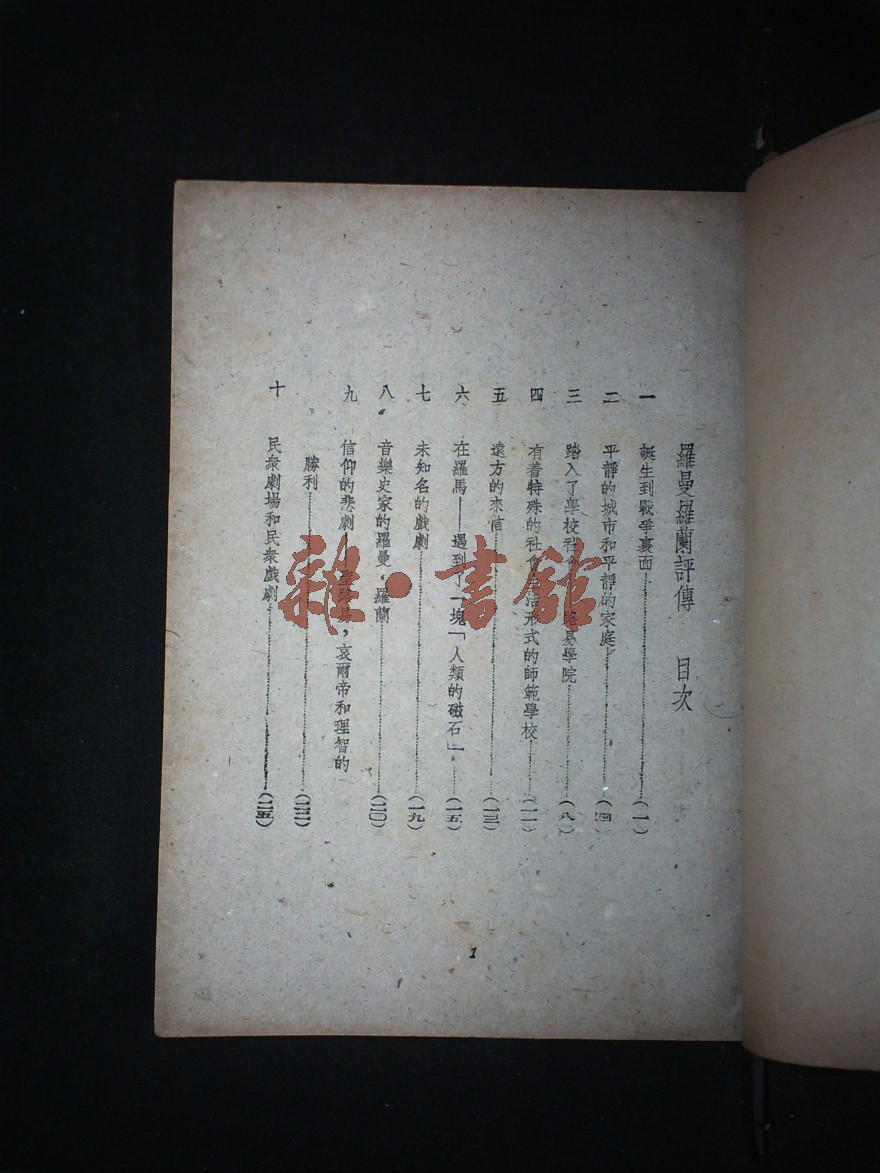 羅曼羅蘭評傳　目次
一　誕生到戰爭裏面……(一)
二　平靜的城市和平靜的家庭……(四)
三　踏入了學校社會　路易學院……(八)
四　有着特殊的社會生活形式的師範學校……(一一)
五　遠方的來信……(一三)
六　在羅馬——遇到了一塊「人類的磁石」……(一五)
七　未知名的戲劇……(一九)
八　音樂史家的羅曼・羅蘭……(二〇)
九　信仰的悲劇——聖路易，哀爾帝和理智的
勝利……(二二)
十　民衆劇場和民衆戲劇……(二五)
1
雜・書館